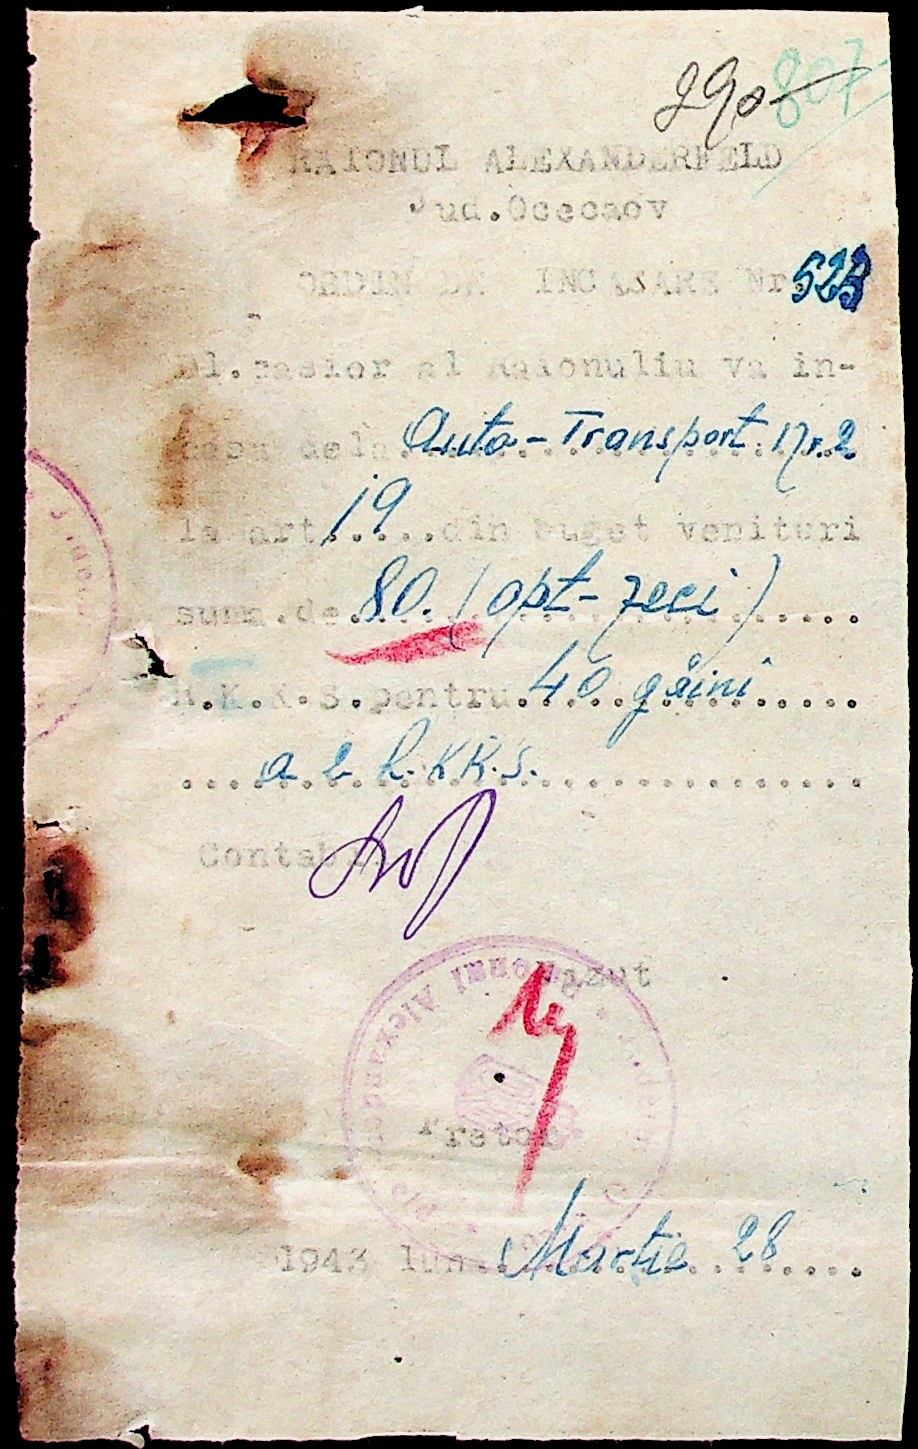 290 807
RAIONUL ALEXANDERFELD
Jud.Ocecaov
ORDIN DE INCASARE Nr. 523
Dl.casior al Raionuliu va in-
casa dela Auto-Transport Nr.2
la art. 19 ...din buget venituri
suma.de. 80. (opt-zeci)
R.K.K.S.pentru 40 găini
... a 2 R.KK.S.
Contabil
Vazut
Raionul Alexander
Pretor
1943 luna Martie 28